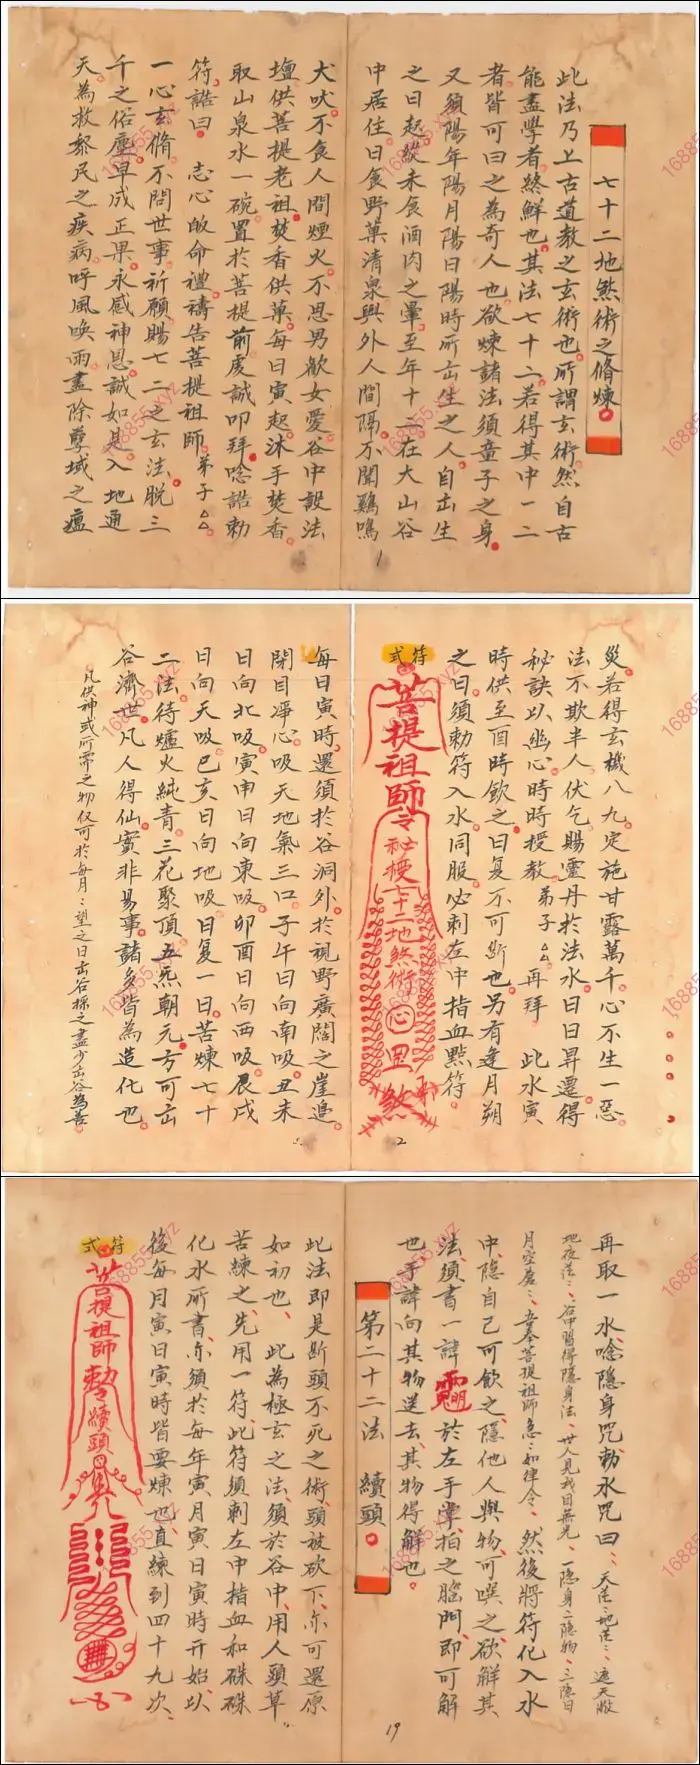 七十二地煞術之脩煉
此法乃上古道教之玄術也所謂玄術然自古
能盡學者終鮮也其法七十二若得其中一二
者皆可曰之為奇人也欲煉諸法須童子之身
又須陽年陽月陽日陽時所出生之人自出生
之日起縱未食酒肉之暈至年十二在大山谷
中居住日食野菓清泉與外人間隔不聞鷄鳴
1
犬吠不食人間煙火不思男歡女愛谷中設法
壇供菩提老祖焚香供菓每日寅起沐手焚香
取山泉水一碗置於菩提前虔誠叩拜唸誥勅
符誥曰 志心皈命禮禱告菩提祖師弟子△△
一心玄脩不問世事祈願賜七二之玄法脫三
千之俗塵早成正果永感神恩誠如是入地通
天為救黎民之疾病呼風喚雨盡除孽域之瘟
災若得玄機八九定施甘露萬千心不生一惡
法不欺半人伏乞賜靈丹於法水日日昇遷得
秘訣以幽心時時授教弟子△△再拜 此水寅
時供至酉時飲之日复不可斷也另有逢月朔
之日須勅符入水同服必刺左中指血點符
符式
菩提祖師
令秘授七十二地煞術
心
煞
2
每日寅時還須於谷洞外於視野廣闊之崖邊
閉目凈心吸天地氣三口子午日向南吸丑未
日向北吸寅申日向東吸卯酉日向西吸辰戌
日向天吸巳亥日向地吸日复一日苦煉七十
二法待爐火純青三花聚頂五炁朝元方可出
谷濟世凡人得仙實非易事諸多皆為造化也
凡供神或所需之物仅可於每月望之日出谷採之盡少出谷為善
再取一水唸隱身咒勅水咒曰天茫地茫遮天敝
地夜茫谷中習得隱身法世人見我目無光一隐身二隐物三隐日
月空蕩吾奉菩提祖師急如律令然後將符化入水
中隐自己可飲之隱他人與物可噀之欲解其
法須書一諱於左手掌拍之腦門即可解
也手諱向其物送去其物得解也
第二十二法 續頭
19
此法即是斷頭不死之術頭被砍下亦可還原
如初也 此為極玄之法須於谷中用人頭草
苦練之先用一符此符須刺左中指血和硃硃
化水所書亦須於每年寅月寅日寅時开始以
後每月寅日寅時皆要煉也直練到四十九次
符式
菩提祖師勅續頭
168855.xyz